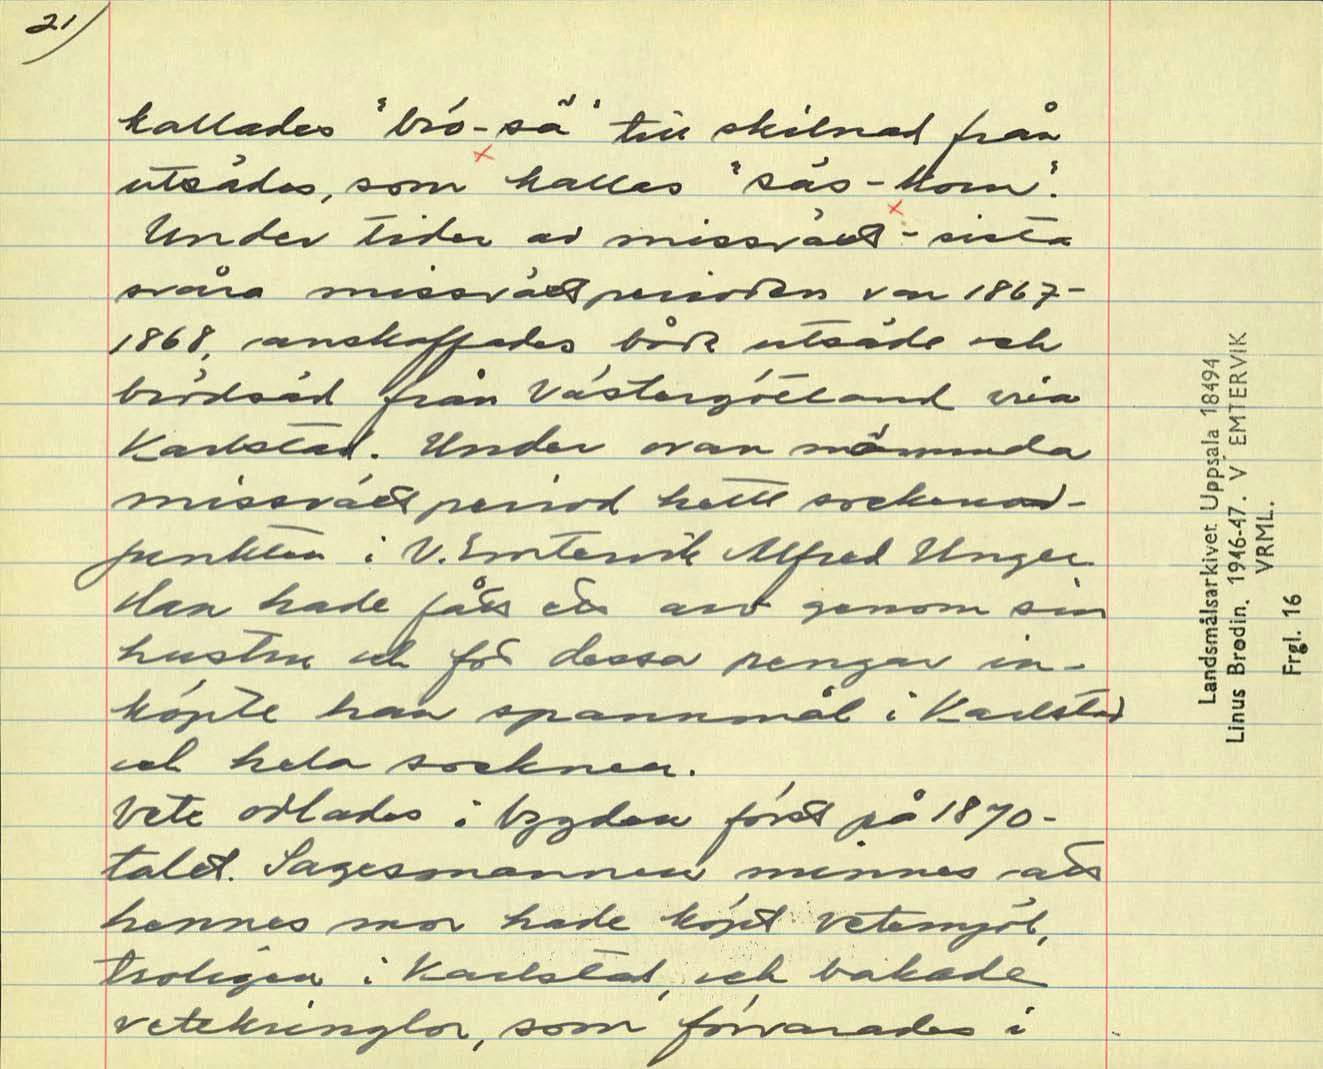 21)
kallades "brö-sä" till skilnad från
utsädes, som kallas "säs-korn".
Under tider av missväxt - sista
svåra missväxtperioden var 1867-
1868, anskaffades både utsäde och
brödsäd från Västergötland via
Karlstad. Under ovan nämnda
missväxtperiod hette sockenad-
junkten i V. Emtervik Alfred Unger.
Han hade fått ett arv genom sin
hustru och för dessa pengar in-
köpte han spannmål i Karlstad
och hela socknen.
Vete odlades i bygden först på 1870-
talet. Sagesmannen minnes att
hennes mor hade köpt vetemjöl,
troligen i Karlstad, och bakade
vetekringlor, som förvarades i
Landsmålsarkivet Uppsala 18494
Linus Brodin. 1946-47. V EMTERVIK
VRML.
Frgl. 16